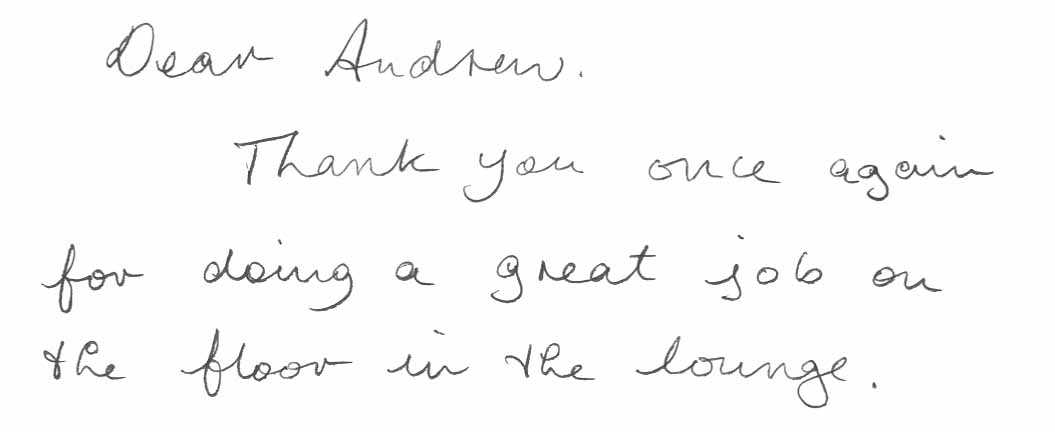 Dear Andrew.
Thank you once again
for doing a great job on
the floor in the lounge.